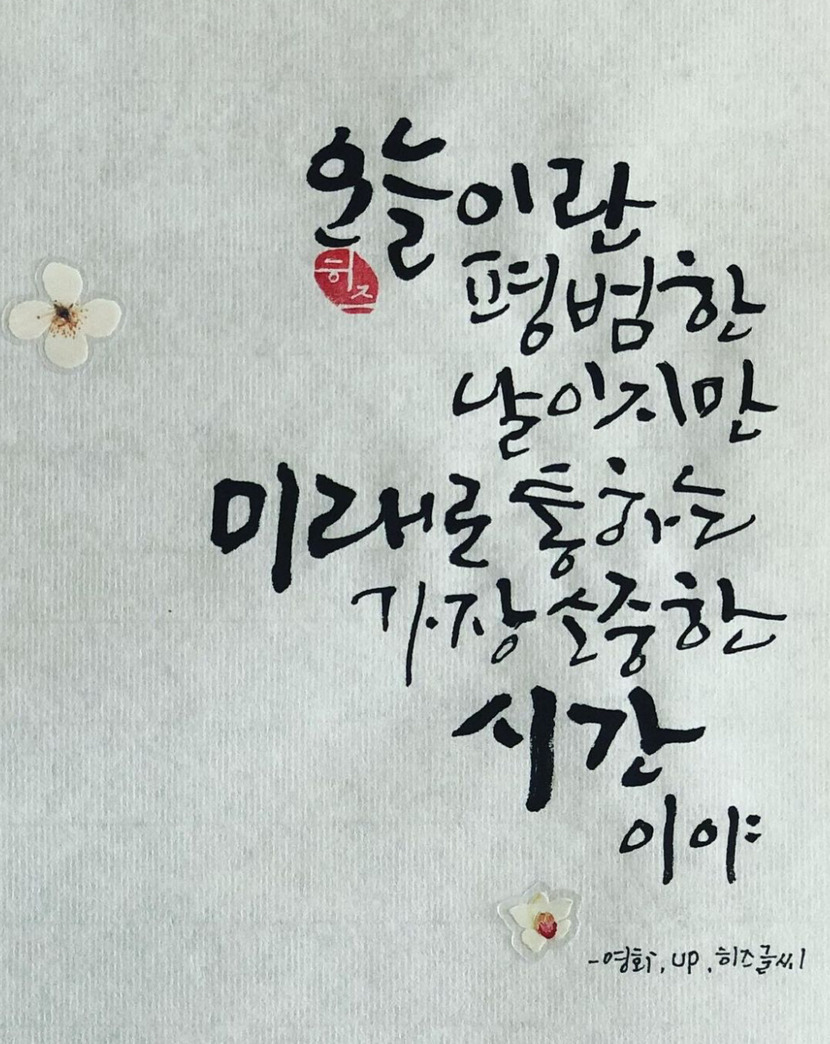 오늘이란
히즈
평범한
날이지만
미래로 통하는
가장 소중한
시간
이야
-영화, up, 히즈글씨